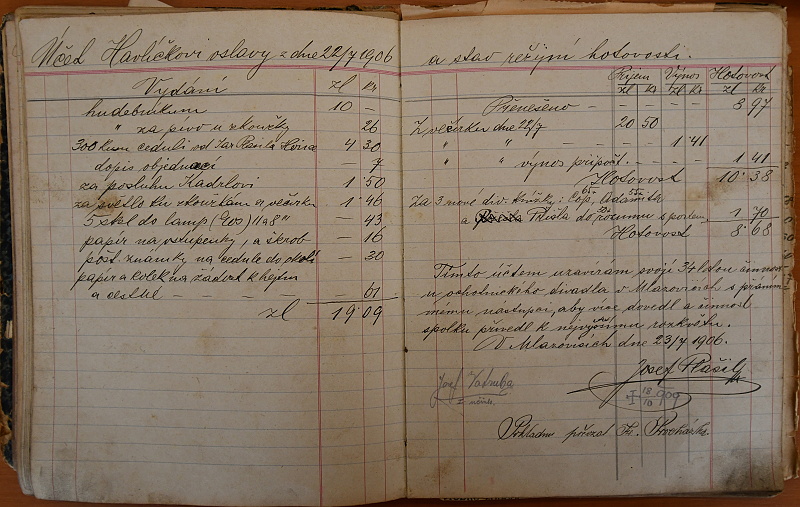 Účet Havlíčkovi oslavy z dne 22/7 1906
Vydání zl kr
hudebníkům 10 —
" za pivo u zkoušky 26
300 kusů cedulí od 4 30
dopis objednací — 7
za posluhu Kadrlovi 1 50
za světlo ku zkouškám a večírku 1 46
5 skel do lamp 11 a 8" — 43
papír na vstupenky, a škrob 16
pošt. známky na cedule do okolí — 30
papír a kolek na žádost k hejtm
a cestné — — — — 61
zl 19 09
a stav režijní hotovosti.
Příjem Výnos Hotovost
zl kr zl kr zl kr
Přenešeno — — — — 8 97
Z večírku dne 22/7 20 50
" " — — — — 1 41
" " výnos připočt. — — — 1 41
Hotovost 10 38
Za 3 nové div. knížky: Čop, Adamita
a Třísla do rozumu s porlem 1 70
Hotovost 8 68
Tímto účtem uzavírám svojí 34 letou činnost
u ochotnického divadla v Mlazovicích s přáním
mému nástupci, aby více dovedl a činnost
spolku přivedl k nejvyššímu rozkvětu.
V Mlazovicích dne 23/7 1906.
Josef Plašil
18/10 1909
Josef Votruba
Pokladnu převzal Fr. Procházka.